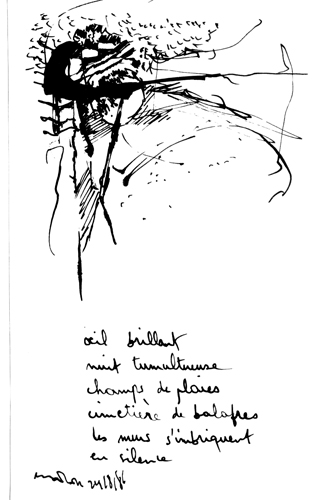 œil brillant
nuit tumultueuse
champs de plaies
cimetière de balafres
les murs s'imbriquent
en silence